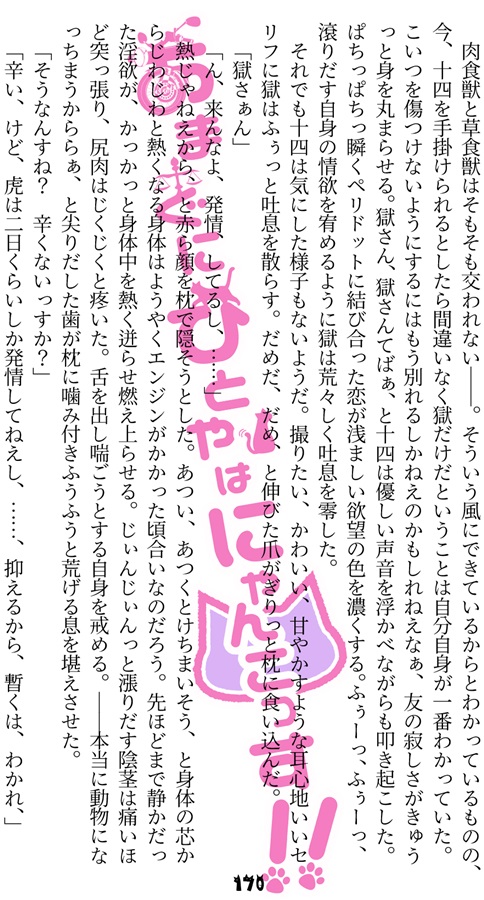 肉食獣と草食獣はそもそも交われない――。そういう風にできているからとわかっているものの、
今、十四を手掛けられるとしたら間違いなく獄だけだということは自分自身が一番わかっていた。
こいつを傷つけないようにするにはもう別れるしかねえのかもしれねえなぁ、友の寂しさがきゅう
っと身を丸まらせる。獄さん、獄さんてばぁ、と十四は優しい声音を浮かべながらも叩き起こした。
ぱちっぱちっ瞬くペリドットに結び合った恋が浅ましい欲望の色を濃くする。ふぅーっ、ふぅーっ、
滾りだす自身の情欲を宥めるように獄は荒々しく吐息を零した。
それでも十四は気にした様子もないようだ。撮りたい、かわいい、甘やかすような耳心地いいセ
リフに獄はふぅっと吐息を散らす。だめだ、だめ、と伸びた爪がぎりっと枕に食い込んだ。
「獄さぁん」
「ん、来んなよ、発情、してるし、……」
熱じゃねえから、と赤ら顔を枕で隠そうとした。あつい、あつくとけちまいそう、と身体の芯か
らじわじわと熱くなる身体はようやくエンジンがかかった頃合いなのだろう。先ほどまで静かだっ
た淫欲が、かっかっと身体中を熱く迸らせ燃え上らせる。じぃんじぃんっと漲りだす陰茎は痛いほ
ど突っ張り、尻肉はじくじくと疼いた。舌を出し喘ごうとする自身を戒める。――本当に動物にな
っちまうかららぁ、と尖りだした歯が枕に噛み付きふうふうと荒げる息を堪えさせた。
「そうなんすね？　辛くないっすか？」
「辛い、けど、虎は二日くらいしか発情してねえし、……、抑えるから、暫くは、わかれ、」
ひとやはにゃんこ吾!!
170